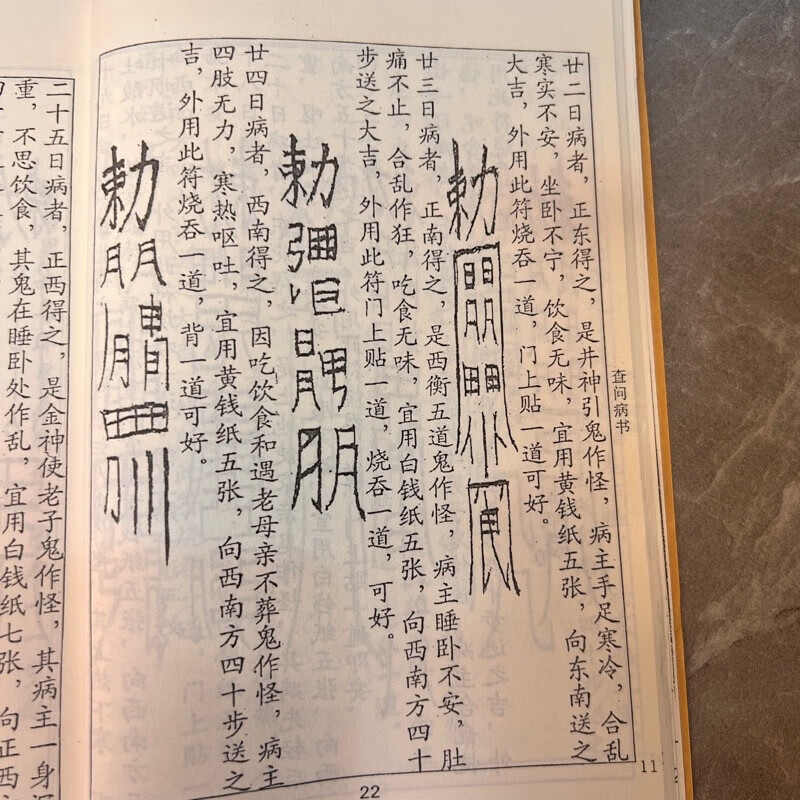 查问病书
廿二日病者，正东得之，是井神引鬼作怪，病主手足寒冷，合乱
寒实不安，坐卧不宁，饮食无味，宜用黄钱纸五张，向东南送之
大吉，外用此符烧吞一道，门上贴一道可好。
勅
廿三日病者，正南得之，是西衡五道鬼作怪，病主睡卧不安，肚
痛不止，合乱作狂，吃食无味，宜用白钱纸五张，向西南方四十
步送之大吉，外用此符门上贴一道，烧吞一道，可好。
勅
廿四日病者，西南得之，因吃饮食和遇老母亲不葬鬼作怪，病主
四肢无力，寒热呕吐，宜用黄钱纸五张，向西南方四十步送之
吉，外用此符烧吞一道，背一道可好。
勅
二十五日病者，正西得之，是金神使老子鬼作怪，其病主一身
重，不思饮食，其鬼在睡卧处作乱，宜用白钱纸七张，向正西
22
11